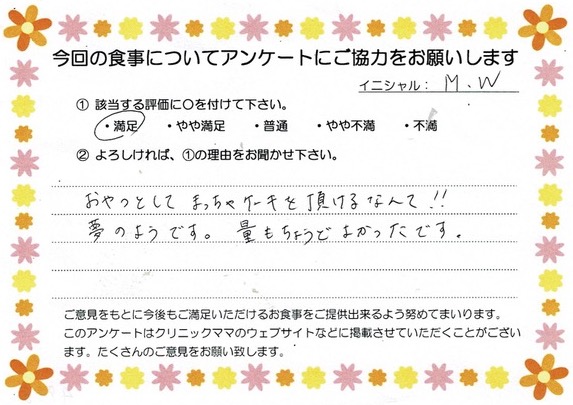 今回の食事についてアンケートにご協力をお願いします
イニシャル: M.W
① 該当する評価に○を付けて下さい。
・満足 ・やや満足 ・普通 ・やや不満 ・不満
② よろしければ、①の理由をお聞かせ下さい。
おやつとして まっちゃケーキを頂けるなんて!!
夢のようです。量もちょうどよかったです。
ご意見をもとに今後もご満足いただけるお食事をご提供出来るよう努めてまいります。
このアンケートはクリニックママのウェブサイトなどに掲載させていただくことがござい
ます。たくさんのご意見をお願い致します。